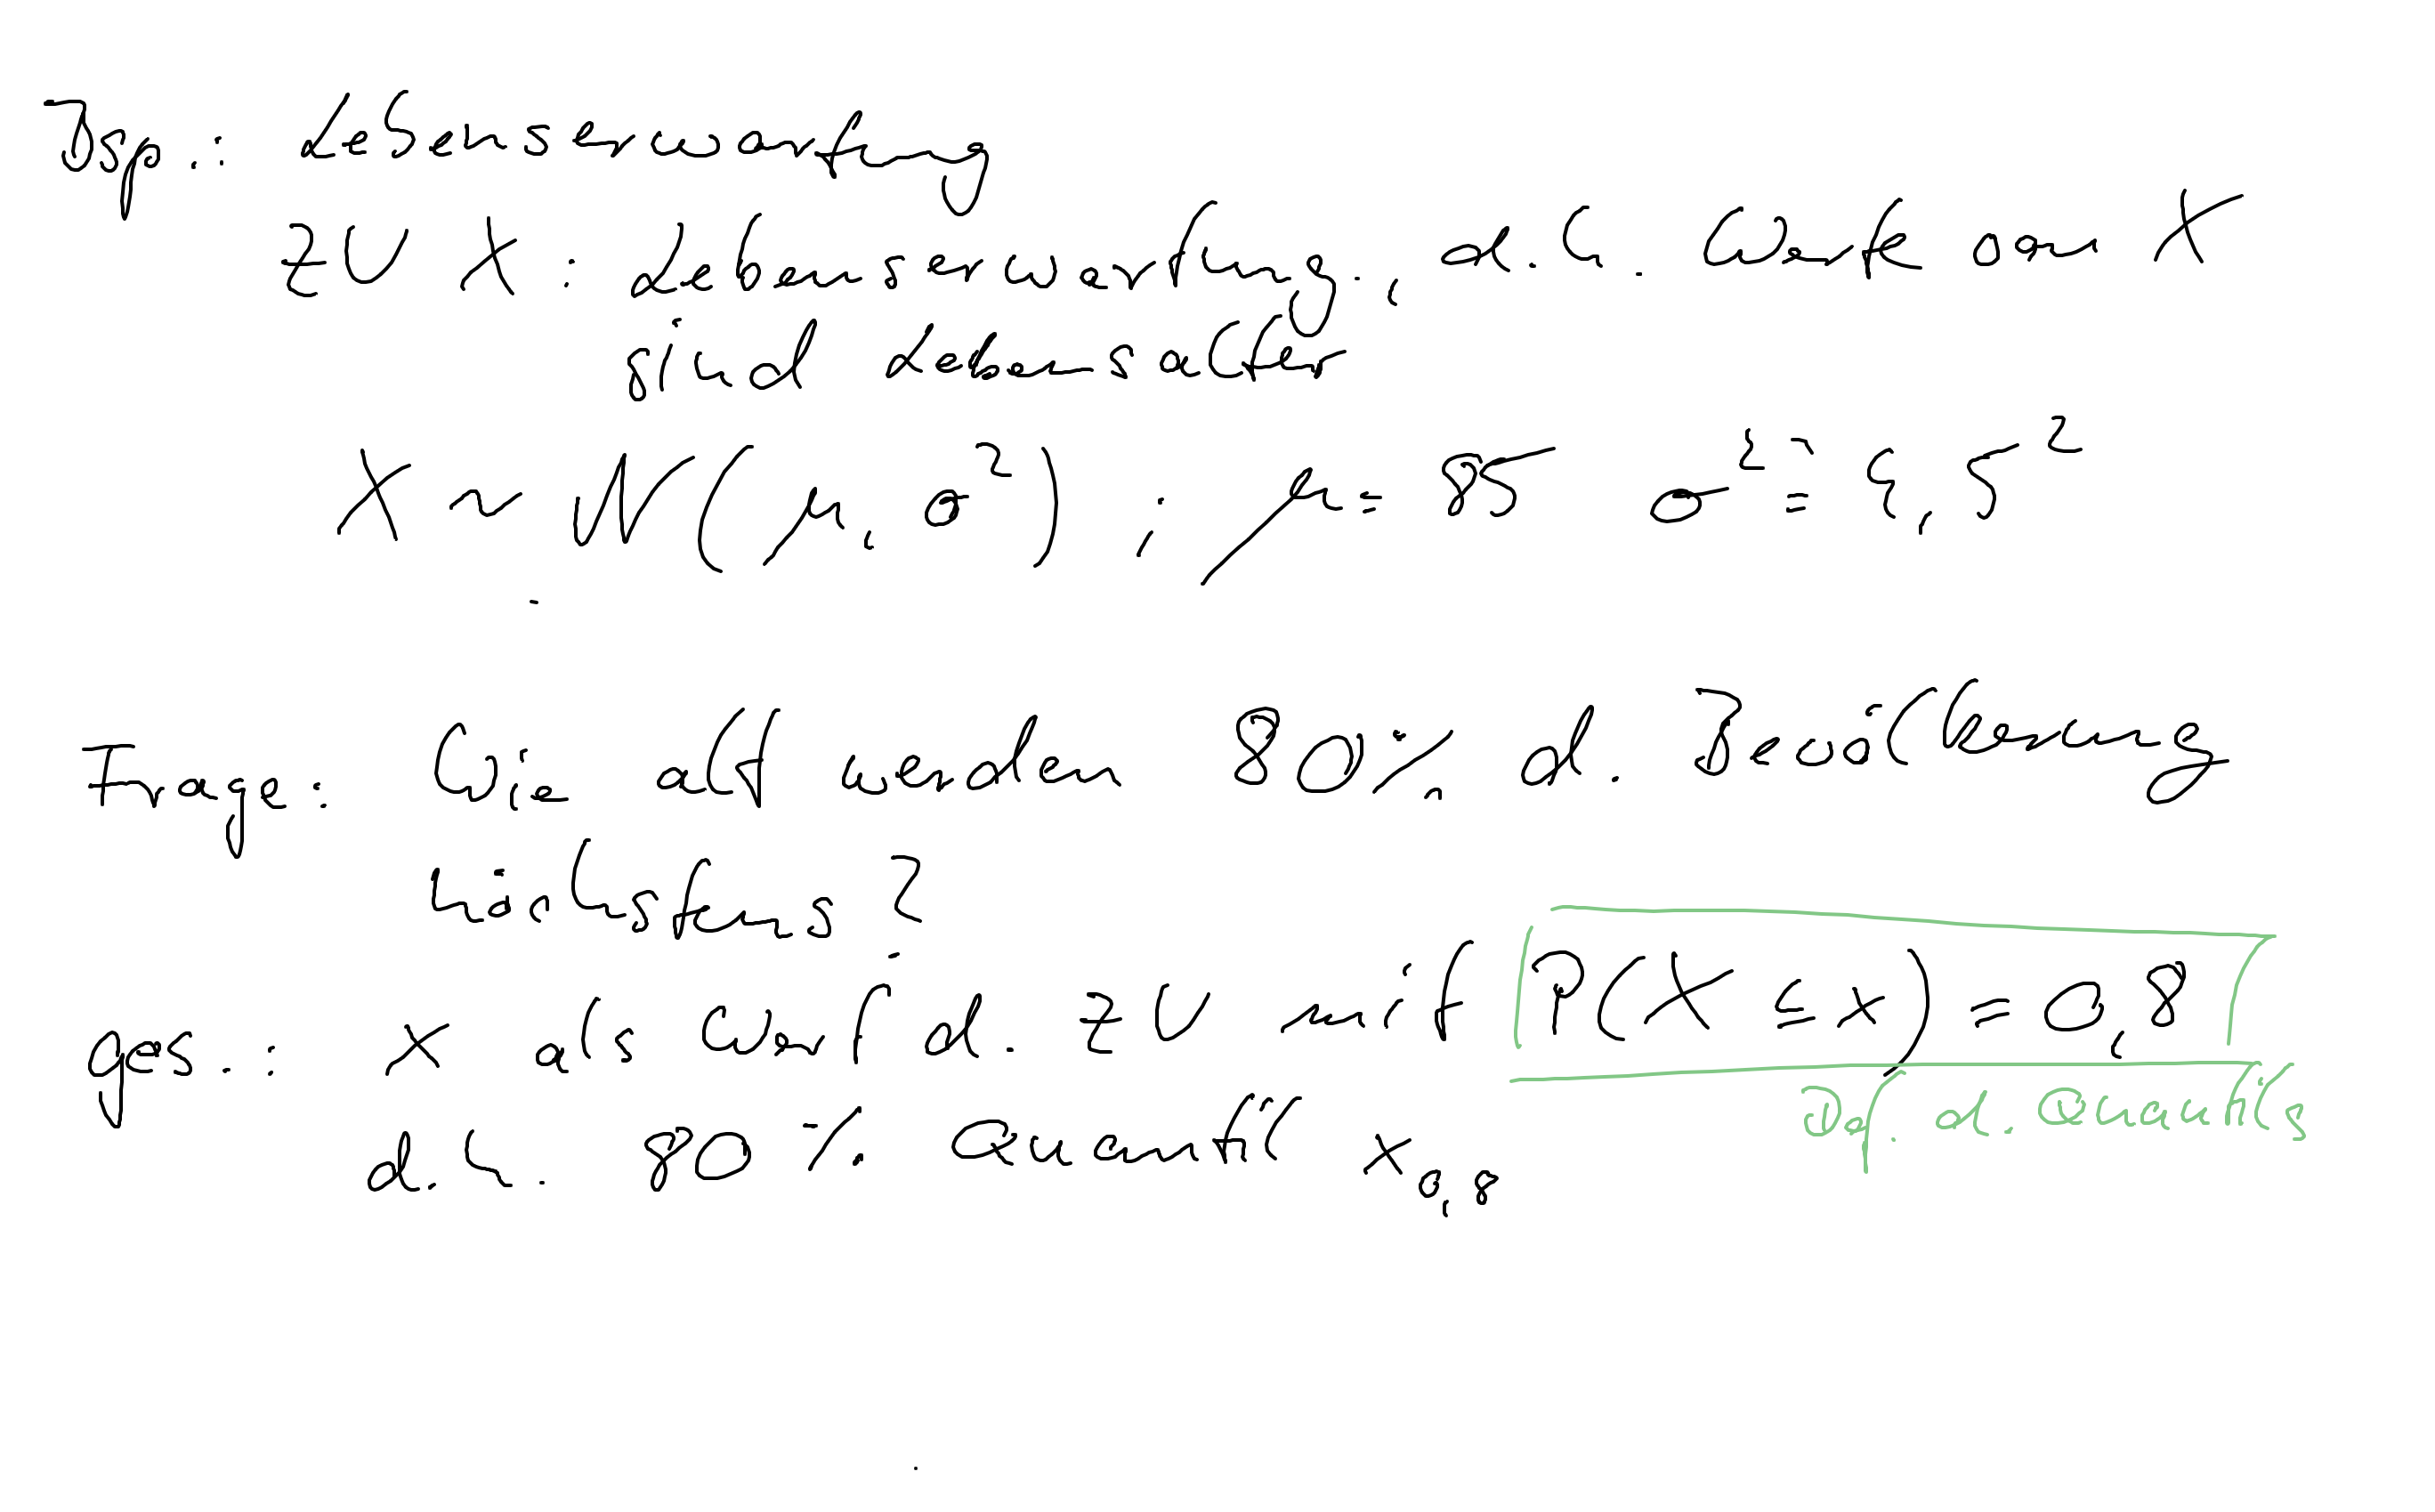 Bsp.: Lebenserwartung
ZV X: Lebenserwartung, d.h. Werte von X
sind Lebensalter
X ~ N(μ, σ²), μ = 85 σ² = 4,5²
Frage: Wie alt werden 80% d. Bevölkerung
höchstens?
ges.: x als Wert d. ZV mit P(X ≤ x) = 0,8
Def. d. Quantils
d.h. 80% Quantil x₀,₈